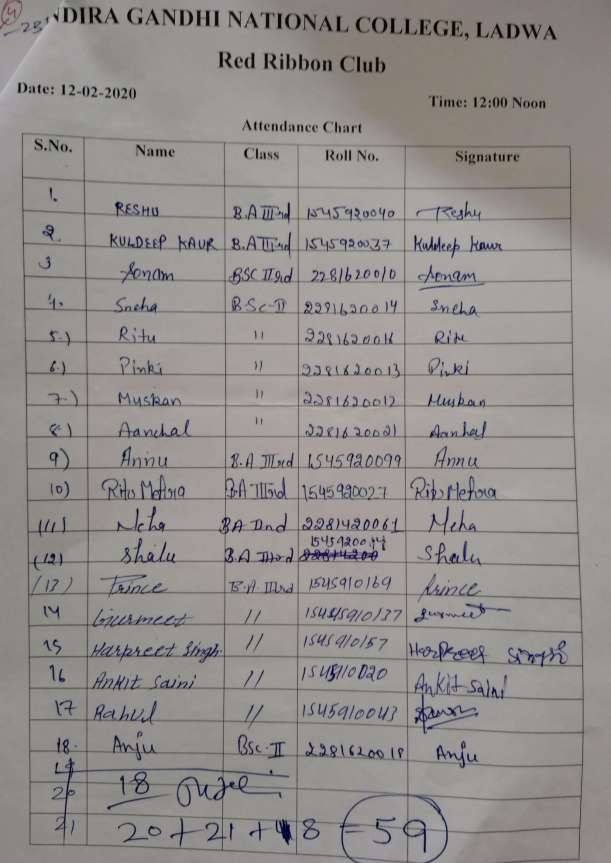 4
NDIRA GANDHI NATIONAL COLLEGE, LADWA
Red Ribbon Club
Date: 12-02-2020
Time: 12:00 Noon
Attendance Chart
S.No. Name Class Roll No. Signature
1. RESHU B.A IIIrd 1545920040 Reshu
2. KULDEEP KAUR B.A IIIrd 1545920037 Kuldeep Kaur
3 Sonam BSC IInd 2281620010 Sonam
4. Sneha B.Sc-II 2281620014 Sneha
5.) Ritu " 2281620016 Ritu
6.) Pinki " 2281620013 Pinki
7.) Muskan " 2281620012 Muskan
8.) Aanchal " 2281620021 Aanchal
9) Annu B.A IIIrd 1545920099 Annu
10) Ritu Mehra B.A IIIrd 1545920027 Ritu Mehra
(11) Neha BA IInd 2281420061 Neha
(12) Shalu B.A IIIrd Shalu
(13) Prince B.A IIIrd 1545910169 Prince
14 Gurmeet // Gurmeet
15 Harpreet Singh // 1545910157 Harpreet Singh
16 Ankit Saini // Ankit Saini
17 Rahul // 1545910043
18. Anju BSc-II 2281620018 Anju
19
20 18
21 20 + 21 + 18 = 59